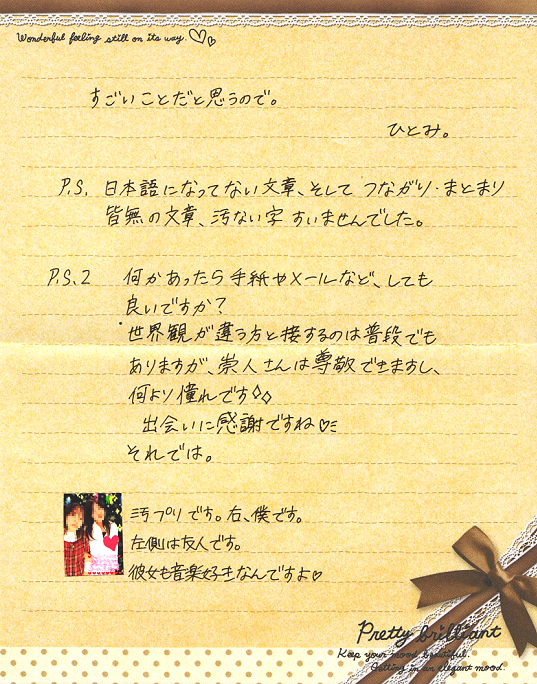 Wonderful feeling still on its way.
すごいことだと思うので。
ひとみ。
P.S. 日本語になってない文章、そして つながり・まとまり
皆無の文章、汚ない字 すいませんでした。
P.S.2 何かあったら手紙やメールなど、しても
良いですか?
世界観が違う方と接するのは普段でも
ありますが、崇人さんは尊敬できますし、
何より憧れです◇◇
出会いに感謝ですね♡
それでは。
汚プリです。右、僕です。
左側は友人です。
彼女も音楽好きなんですよ♡
Pretty brilliant
Keep your mood beautiful.
Getting in an elegant mood.